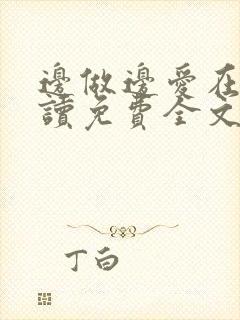 邊做邊愛在
讀免費全文
丁白